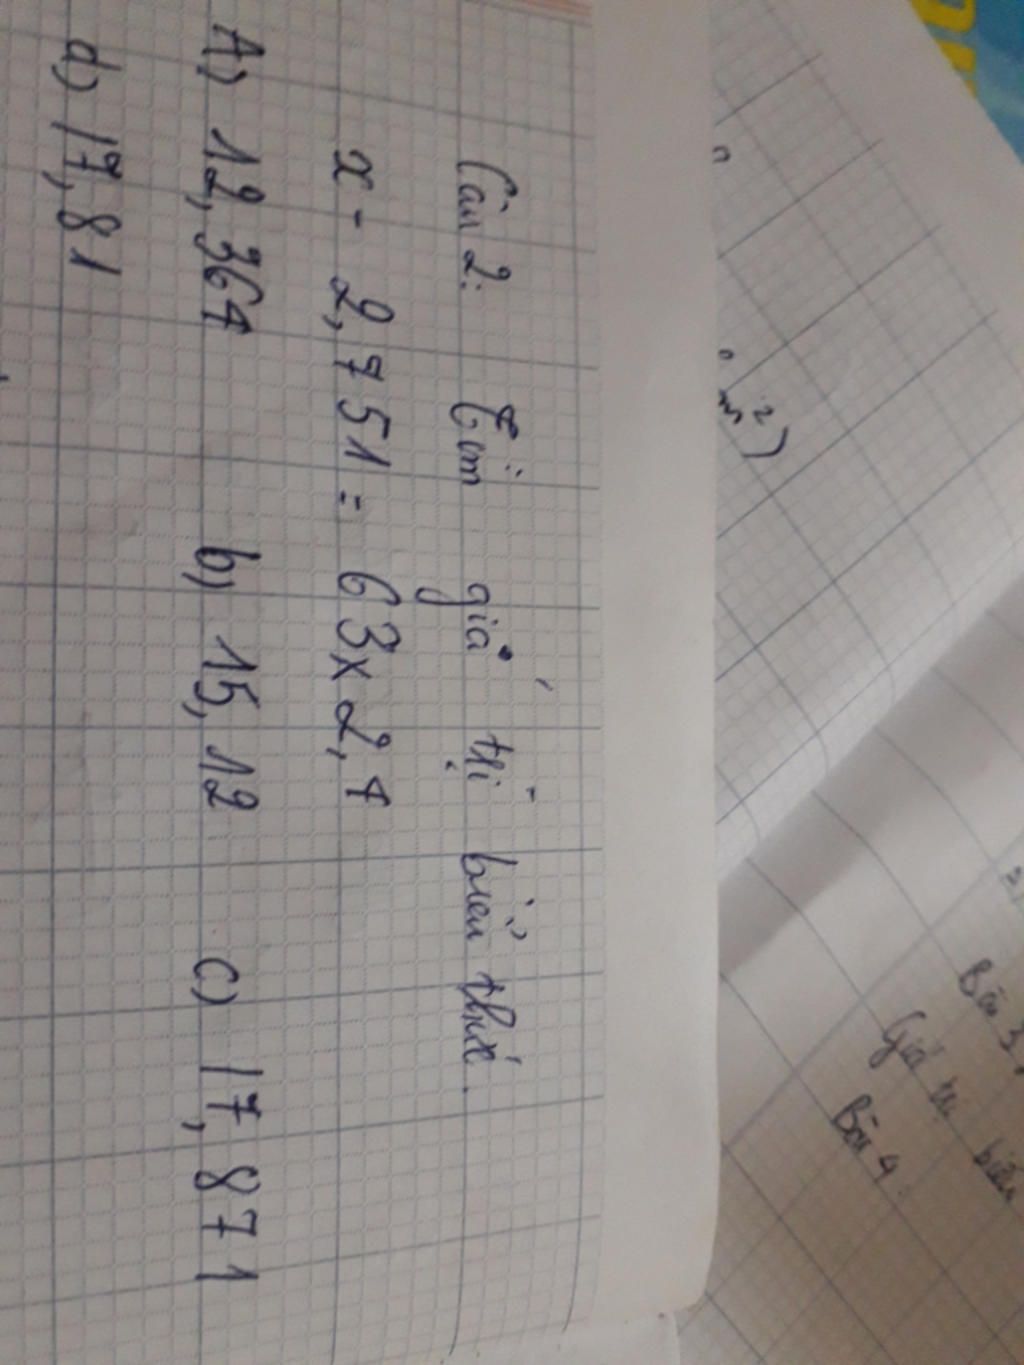 Câu 2: Tìm giá trị biểu thức.
x - 2,751 = 63 x 2,4
A) 12,364 b) 15,12 c) 17,871
d) 17,81
m²)
Bài 3
Giá trị biểu
Bài 4